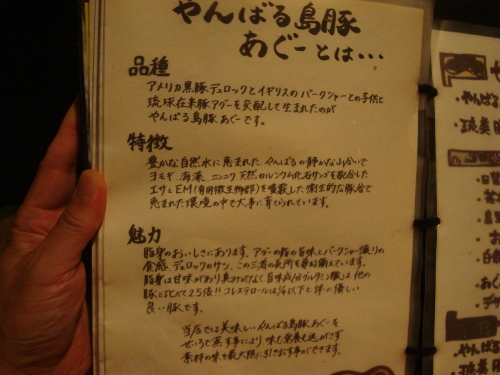 やんばる島豚
あぐーとは...
品種
アメリカ黒豚デュロックとイギリスのバークシャーとの子供と
琉球在来豚アグーを交配して生まれたのが
やんばる島豚あぐーです。
特徴
豊かな自然、水に恵まれた、やんばるの静かな山合いで
ヨモギ、海藻、ニンニク、天然カルシウム化石サンゴを配合した
エサとEM(有用微生物郡)を噴霧した衛生的な豚舎で
恵まれた環境の中で大事に育てられています。
魅力
脂身のおいしさにあります。アグーの脂の旨味とバークシャー譲りの
食感、デュロックのサシ、この三者の長所を兼ね備えています。
脂身は甘味があり臭みがなく旨味成分(グルタミン酸)は他の
豚と比べて2.5倍!!コレステロールは1/4以下と体に優しい
良い豚です。
当店では美味しいやんばる島豚あぐーを
せいろで蒸す事により味も栄養も逃がさず
素材の味を最大限に引き出す事ができます。
やんばる
琉美